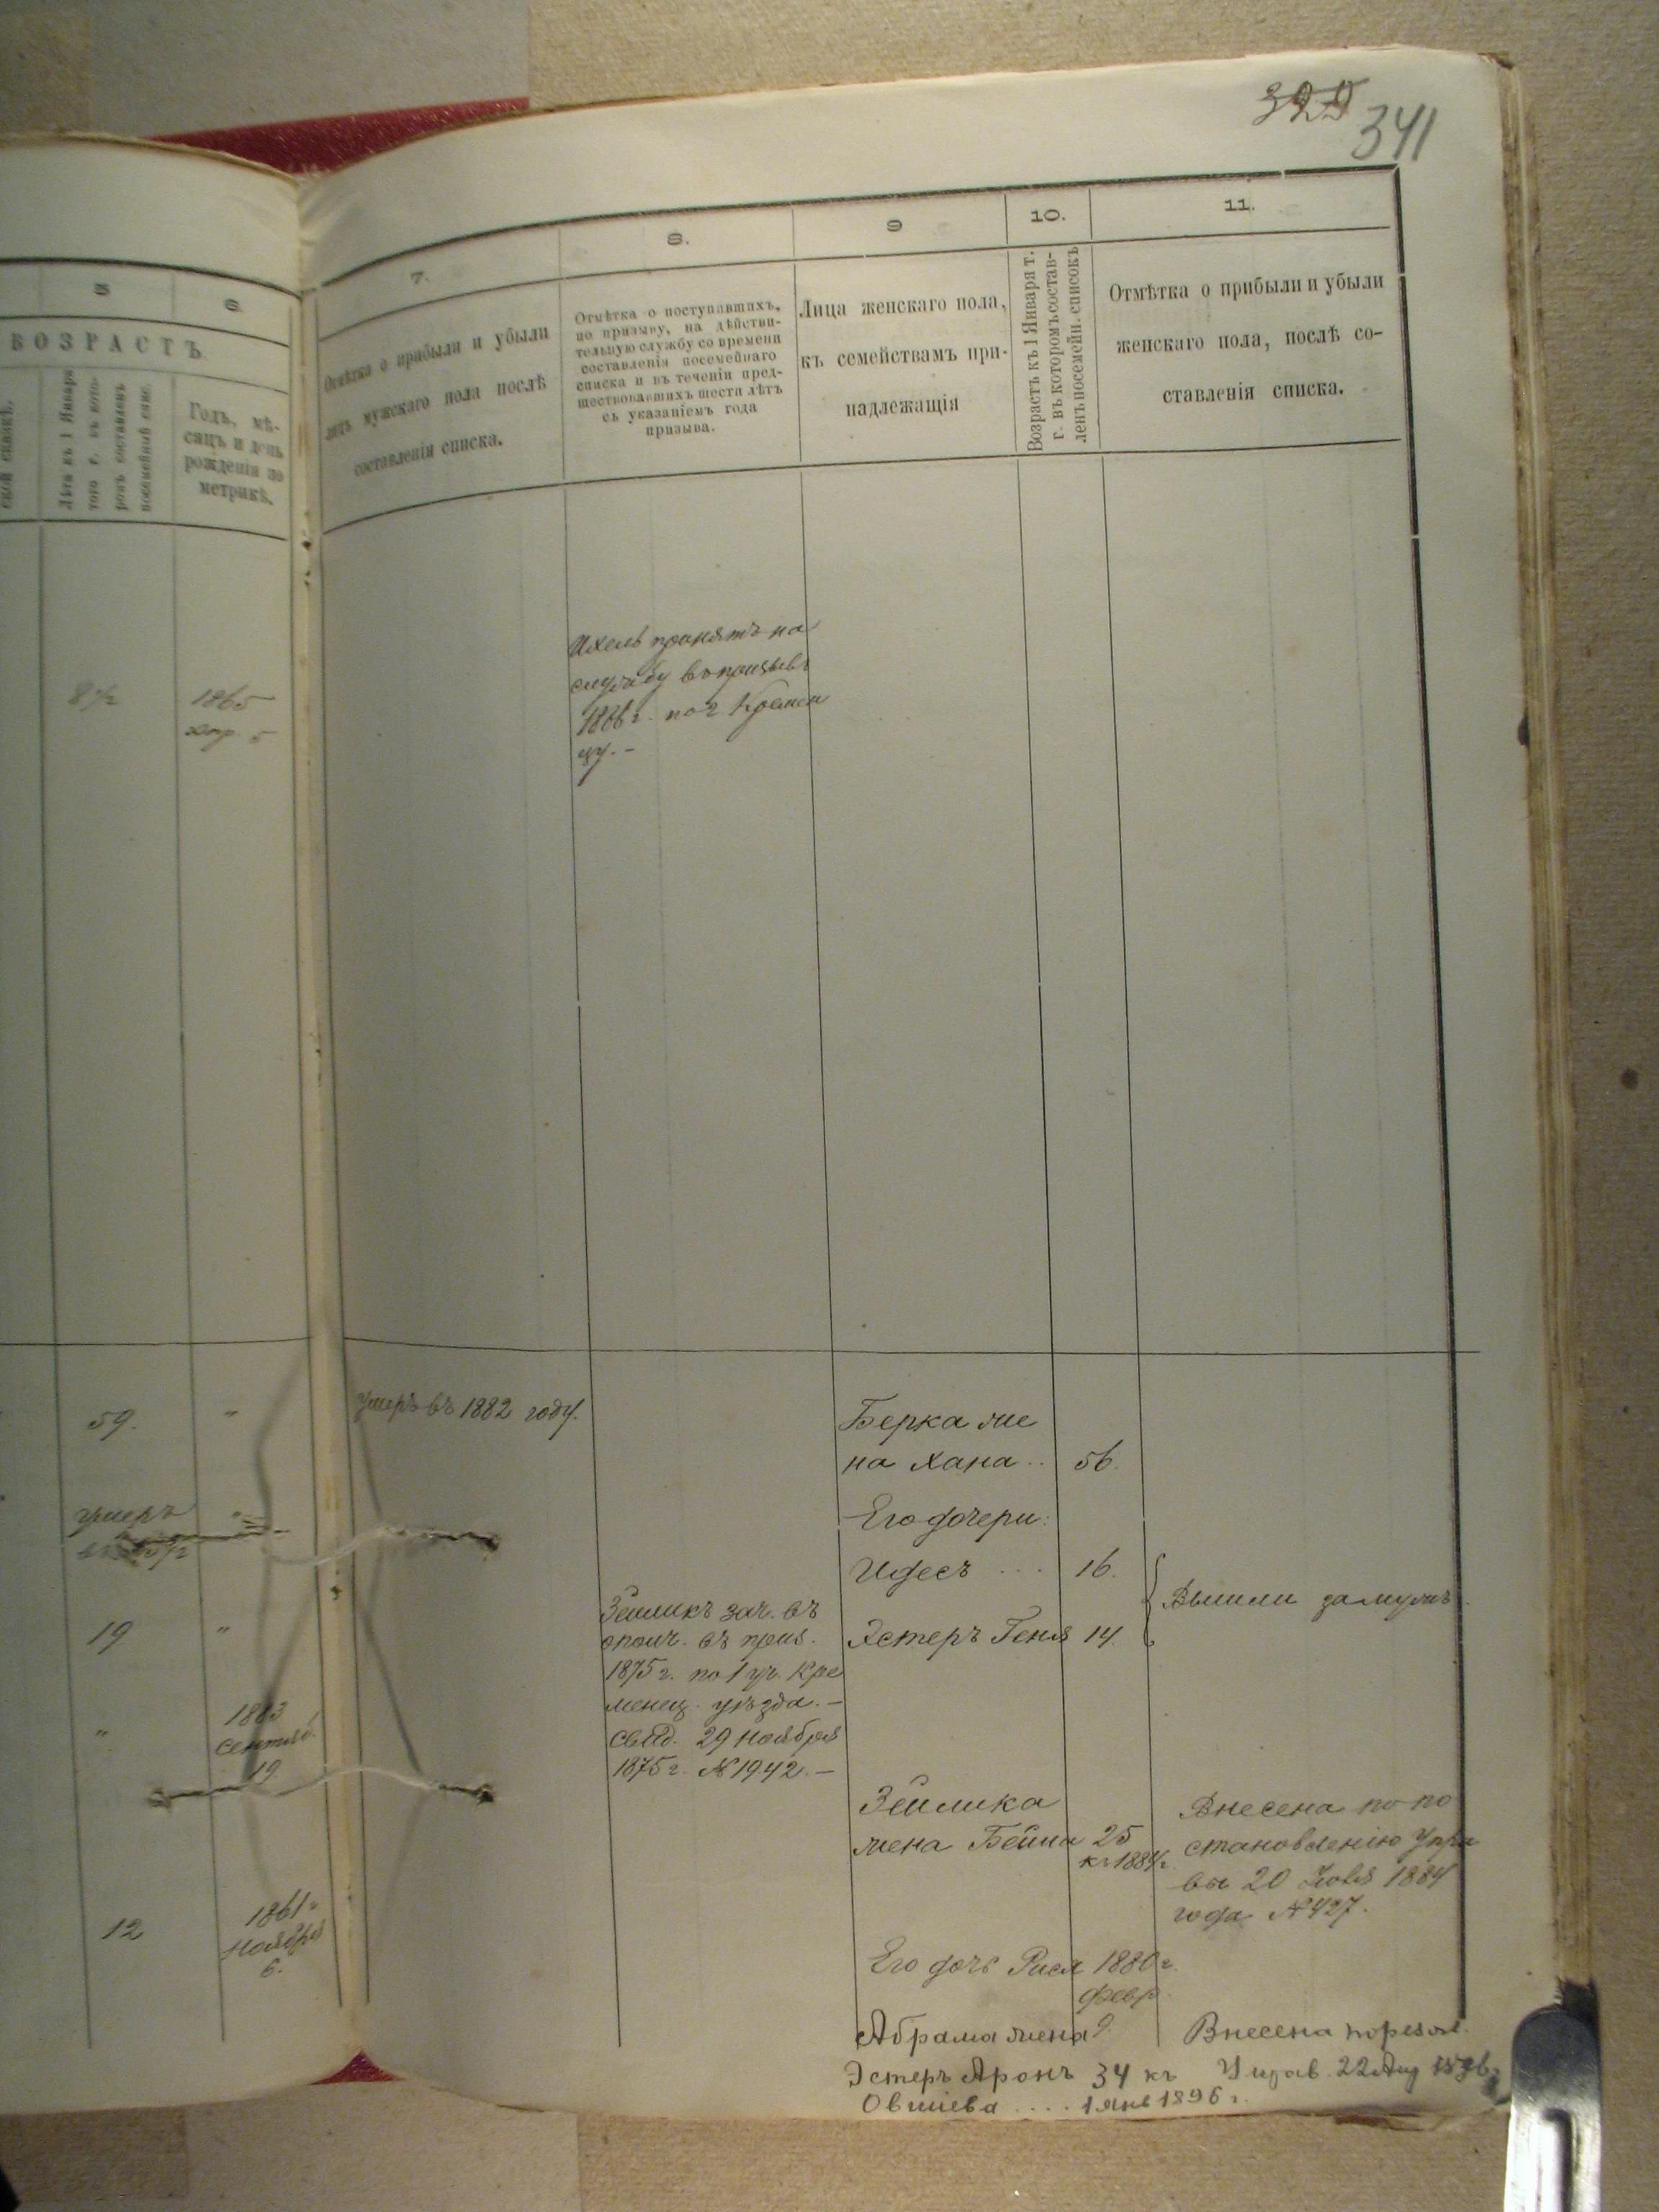 325
341
5
6
ВОЗРАСТЪ
Лѣта къ 1 Января
того г. въ кото-
ромъ составленъ
посемейный спис.
Годъ, мѣ-
сяцъ и день
рожденія по
метрикѣ.
7.
8.
9
10.
11.
Отмѣтка о прибыли и убыли
лицъ мужскаго пола послѣ
составленія списка.
Отмѣтка о поступившихъ,
по призыву, на дѣйстви-
тельную службу со времени
составленія посемейнаго
списка и въ теченіи пред-
шествовавшихъ шести лѣтъ
съ указаніемъ года
призыва.
Лица женскаго пола,
къ семействамъ при-
надлежащія
Возрастъ къ 1 Января т.
г. въ которомъ состав-
ленъ посемейн. списокъ
Отмѣтка о прибыли и убыли
женскаго пола, послѣ со-
ставленія списка.
8 1/2
1865
5
Ихель принятъ на
службу въ призывъ
1886 г. по г. Кремен
цу. –
59.
"
Умеръ въ 1882 году.
Берка же
на Хана .. 56.
умеръ
"
Его дочери:
Идесъ ... 16.
Эстеръ Геня 14.
Вышли замужъ.
19
"
Зейликъ зач. въ
ополч. въ приз.
1875 г. по 1 уч. Кре
менец. уѣзда. –
Свид. 29 Ноября
1875 г. № 1942. –
"
1883
Сентяб.
19
Зейлика
жена Бейла 25
къ 1884 г.
Внесена по по
становленію Упра
вы 20 1884
года № 427.
12
1861 г
Ноября
6.
Его дочь Рися 1880 г.
Февр.
9.
Абрама жена
Эстеръ Аронъ 34 къ
Овшіева .... 1 Янв 1896 г.
Внесена по резол.
Управ. 22 Авг 1896 г